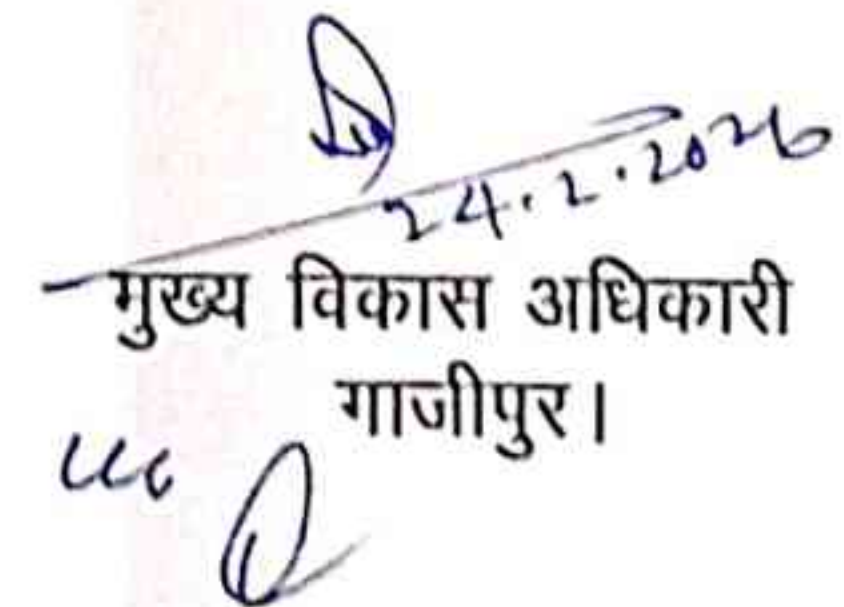 24.2.2026
मुख्य विकास अधिकारी
गाजीपुर।